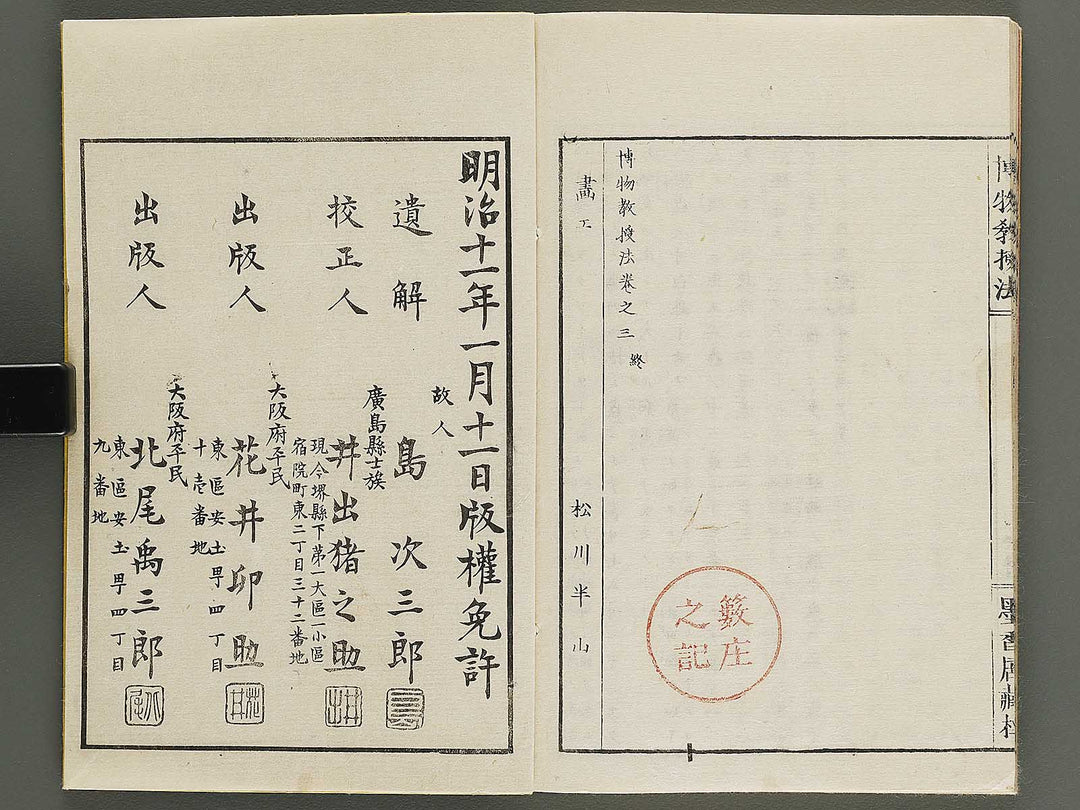 博物教授法
墨香居藏梓
博物教授法卷之三 終
畵工 松川半山
籔庄之記
明治十一年一月十一日版權免許
遺解 故人 島次三郎
校正人 廣島縣士族 井出猪之助
現今堺縣下第一大區一小區
宿院町東二丁目三十二番地
出版人 大阪府平民 花井卯助
東區安土町四丁目
十壱番地
出版人 大阪府平民 北尾禹三郎
東區安土町四丁目
九番地
島
井出
花井
北尾